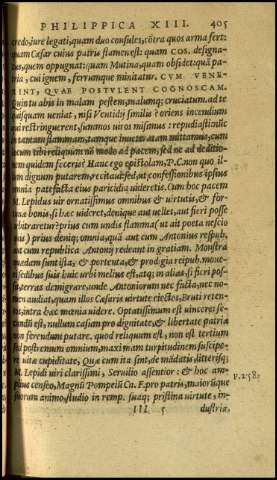 PHILIPPICA XIII. 405
credo, iure legati, quam duo consules, cōtra quos arma fert:
quam Cæsar cuius patris flamen est: quam COS. designa-
tus, quem oppugnat: quam Mutina, quam obsidet: quā pa-
tria, cui ignem, ferrumque minatur. CVM VENE-
RINT, QVAE POSTVLENT COGNOSCAM.
Quin tu abis in malam pestem, malumq; cruciatum. ad te
quisquam veniat, nisi Ventidij similis? oriens incendium
qui restringuerent, summos uiros misimus: repudiasti: nūc
in tantam flammam, tamque inueteratam mittamus, cum
locum tibi reliquum nō modo ad pacem, sed ne ad deditio-
nem quidem feceris? Hanc ego epistolam, P.C. non quo il-
lum dignum putarem, recitaui: sed, ut confessionibus ipsius
omnia patefacta eius paricidia uideretis. Cum hoc pacem
M. Lepidus uir ornatissimus omnibus & uirtutis, & for-
tunæ bonis, si hæc uideret, denique aut uellet, aut fieri posse
arbitraretur? prius cum undis flamma (ut ait poeta nescio
quis) prius deniq; omnia, quā aut cum Antonijs resp.
aut cum republica Antonij redeant in gratiam. Monstra
quædam sunt ista, & portenta, & prodigia reipub. moue-
ri sedibus suis huic urbi melius est, atq; in alias, si fieri pos-
sit, terras demigrare, unde Antoniorum nec facta, nec no-
men audiat, quam illos Cæsaris uirtute eiectos, Bruti reten-
tos, intra hæc mœnia uidere. Optatissimum est uincere: se-
cundū est, nullum casum pro dignitate, & libertate patriæ
non ferendum putare. quod reliquum est, non est tertium
sed postremum omnium, maximam turpitudinem suscipe-
re uitæ cupiditate. Quæ cum ita sint, de mādatis, litterisq;
M. Lepidi uiri clarissimi, Seruilio assentior: & hoc am-
plius censeo, Magnū Pompeiū Cn. F. pro patris, maiorūque
suorum animo, studio in remp. suaq; pristina uirtute, in-
III 5 dustria,